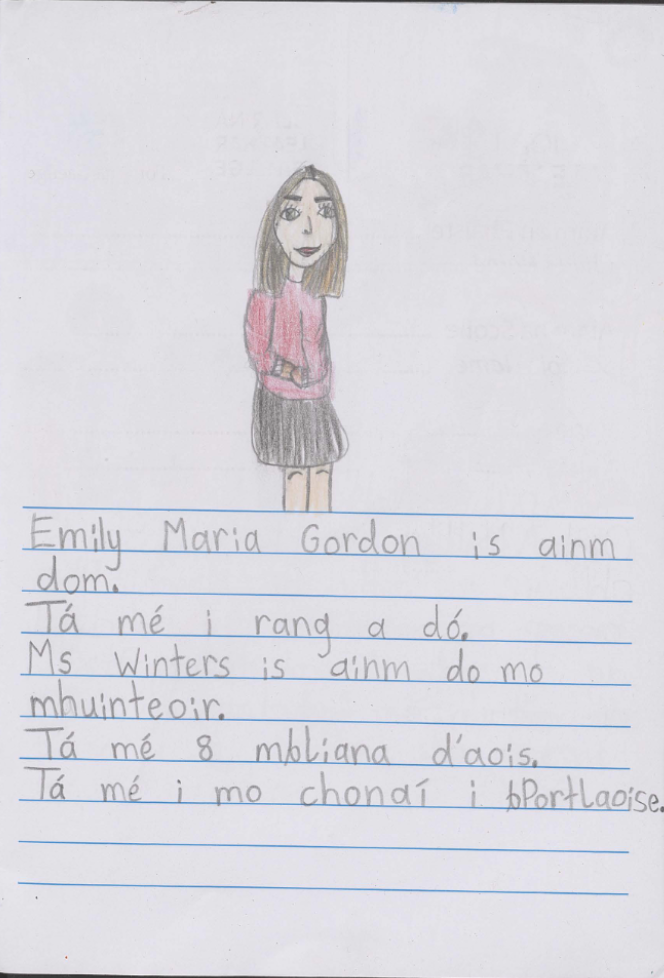 Emily Maria Gordon is ainm
dom.
Tá mé i rang a dó.
Ms Winters is ainm do mo
mhuinteoir.
Tá mé 8 mbliana d'aois.
Tá mé i mo chonaí i bPortLaoise.